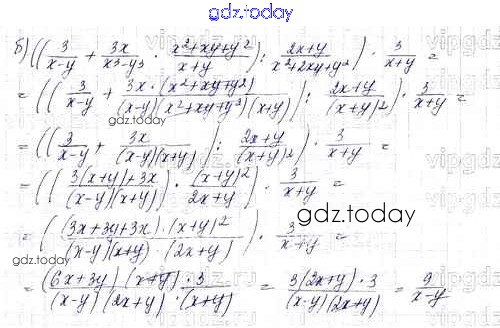 gdz.today
б) ((3/(x-y) + 3x/(x³-y³) · (x²+xy+y²)/(x+y)) : (2x+y)/(x²+2xy+y²)) · 3/(x+y) =
= ((3/(x-y) + 3x·(x²+xy+y²)/((x-y)(x²+xy+y²)(x+y))) : (2x+y)/(x+y)²) · 3/(x+y) =
gdz.today
= ((3/(x-y) + 3x/((x-y)(x+y))) : (2x+y)/(x+y)²) · 3/(x+y) =
= ((3(x+y)+3x)/((x-y)(x+y)) · (x+y)²/(2x+y)) · 3/(x+y) =
gdz.today
= ((3x+3y+3x)·(x+y)²/((x-y)(x+y)·(2x+y))) · 3/(x+y) =
= (6x+3y)(x+y)·3/((x-y)(2x+y)·(x+y)) = 3(2x+y)·3/((x-y)(2x+y)) = 9/(x-y)
gdz.today